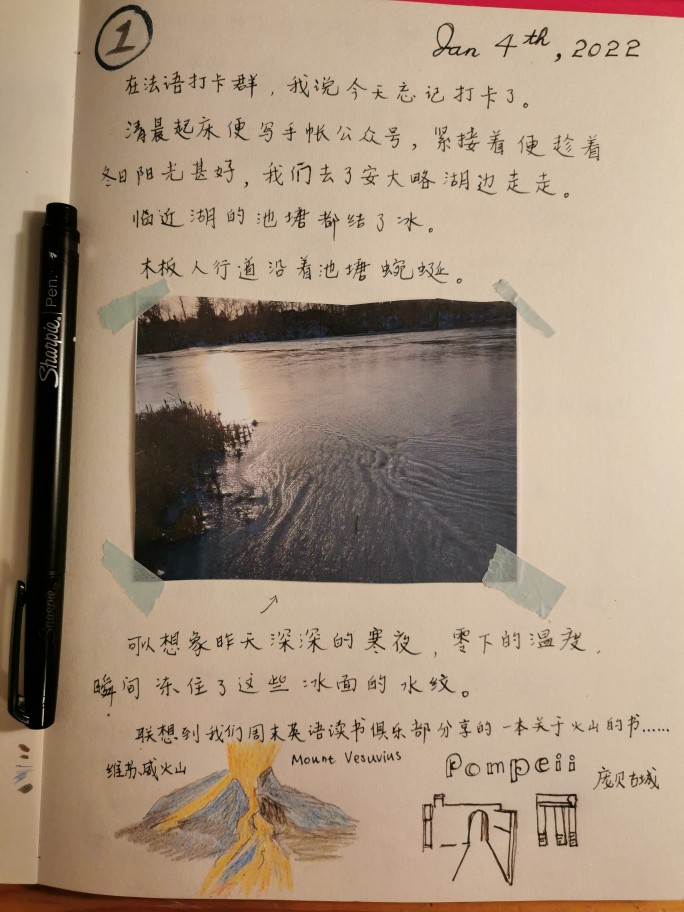 1
Jan 4th, 2022
在法语打卡群，我说今天忘记打卡了。
清晨起床便写手帐公众号，紧接着便趁着
冬日阳光甚好，我们去了安大略湖边走走。
临近湖的池塘都结了冰。
木板人行道沿着池塘蜿蜒。
Sharpie. Pen.
可以想象昨天深深的寒夜，零下的温度，
瞬间冻住了这些冰面的水纹。
联想到我们周末英语读书俱乐部分享的一本关于火山的书……
维苏威火山
Mount Vesuvius
Pompeii
庞贝古城
Sharpie